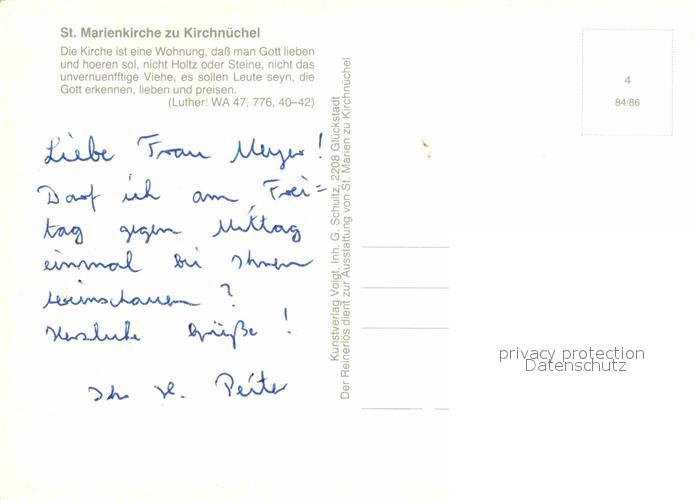 St. Marienkirche zu Kirchnüchel
Die Kirche ist eine Wohnung, daß man Gott lieben
und hoeren sol, nicht Holtz oder Steine, nicht das
unvernuenfftige Viehe, es sollen Leute seyn, die
Gott erkennen, lieben und preisen.
(Luther: WA 47, 776, 40–42)
Liebe Frau Meyer!
Darf ich am Frei=
tag gegen Mittag
einmal bei Ihnen
hereinschauen?
Herzliche Grüße!
Ihr H. Peiter
Kunstverlag Voigt, Inh. G. Schultz, 2208 Glückstadt
Der Reinerlös dient zur Ausstattung von St. Marien zu Kirchnüchel
4
84/86
privacy protection
Datenschutz